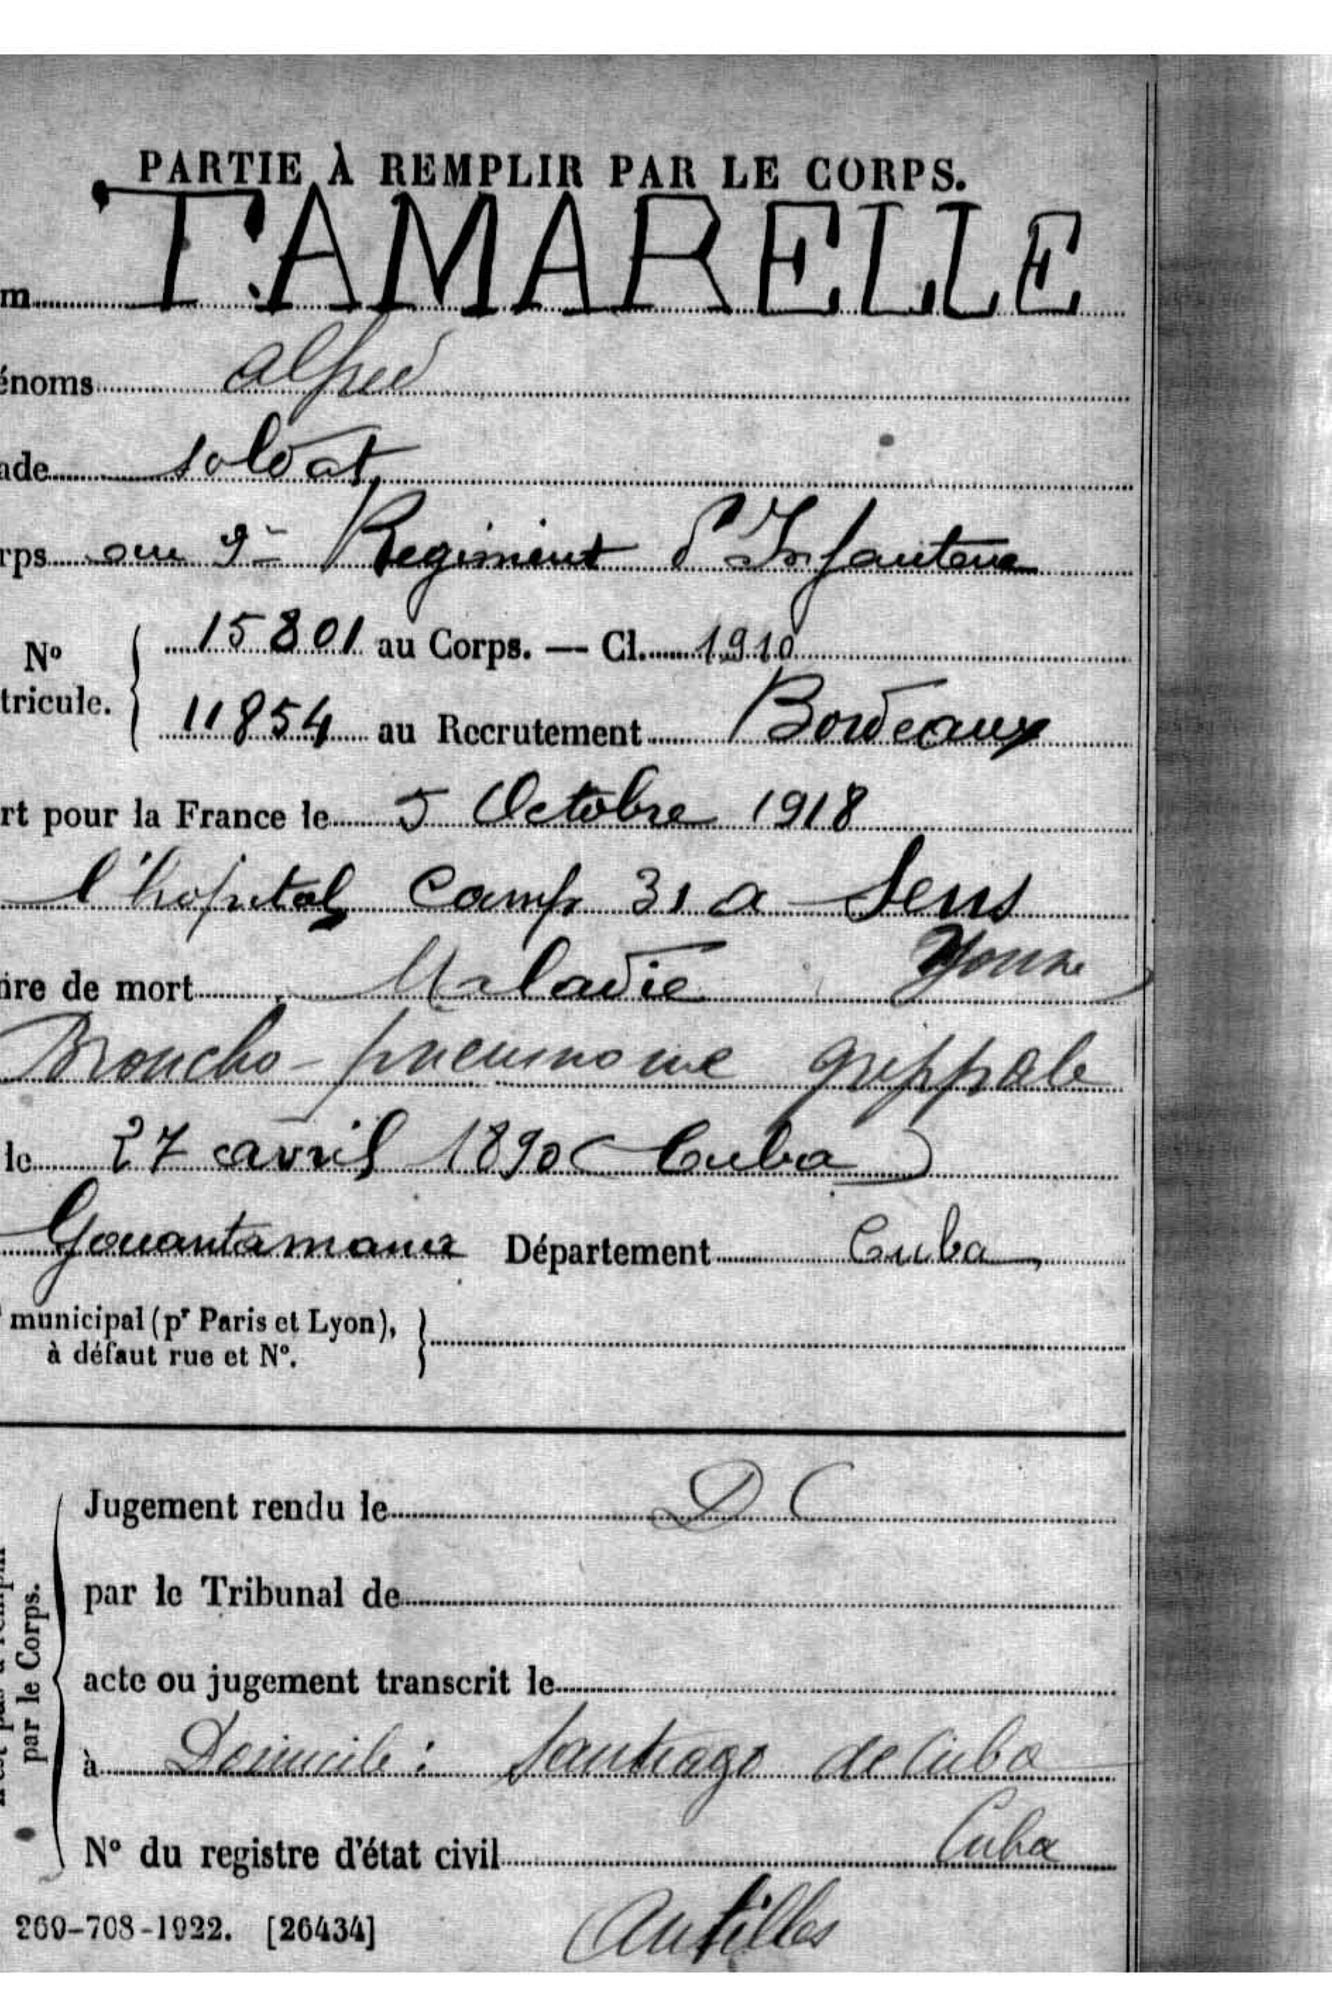 PARTIE À REMPLIR PAR LE CORPS.
m TAMARELLE
énoms Alfred
ade soldat
rps au 9e Regiment d'Infanterie
No
tricule.
15801 au Corps. — Cl. 1910
11854 au Recrutement Bordeaux
rt pour la France le 5 Octobre 1918
l'hopital Camp 31 a Sens
Yonne
nre de mort Maladie
Broncho-pneumonie grippale
le 27 avril 1890 (Cuba)
Gouantamana Département Cuba
municipal (pr Paris et Lyon),
à défaut rue et No.
Jugement rendu le D C
par le Tribunal de
acte ou jugement transcrit le
par le Corps.
à Domicile : Santiago de Cuba
Cuba
No du registre d'état civil
Antilles
269-708-1922. [26434]